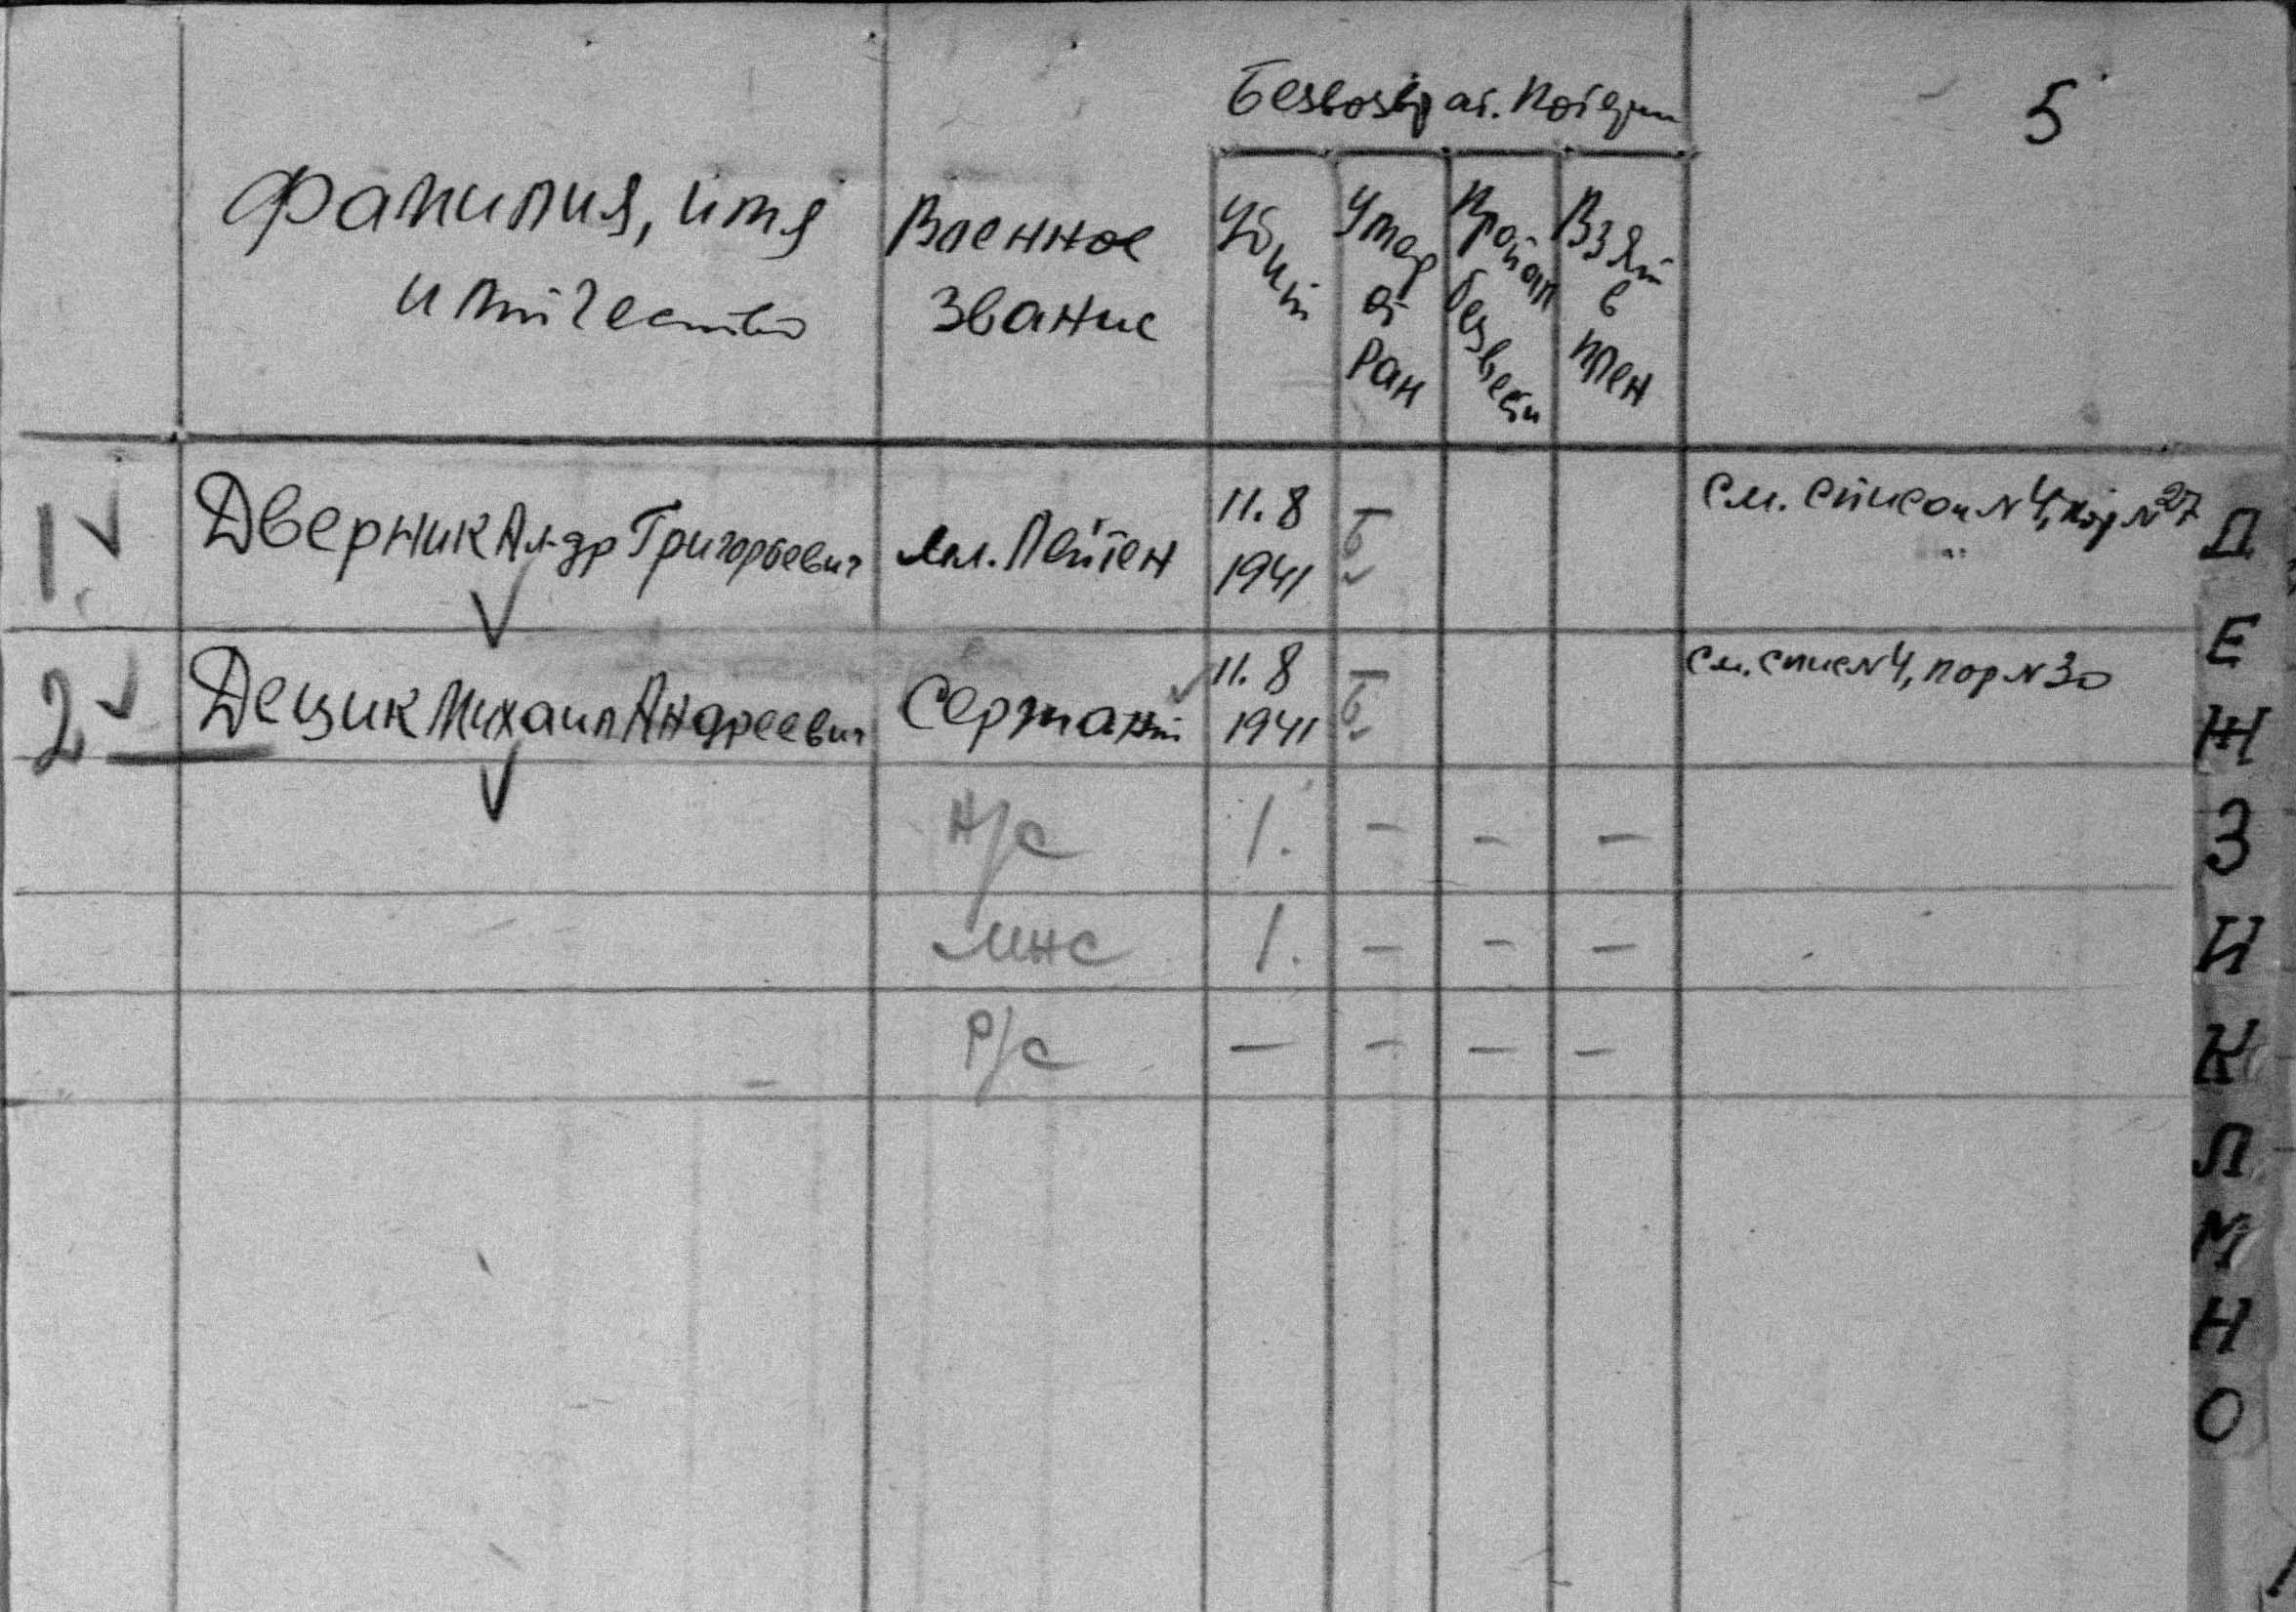 Безвозврат. Потери
5
Фамилия, имя
и отчество
Военное
звание
Убит
Умер
от
ран
Пропал
без вести
Взят
в
плен
1. Дверник Ал-др Григорьевич мл. Лейтен 11.8
1941
См. список N 4, пор N 27
2 Дещик Михаил Андреевич Сержант 11.8
1941
См. спис N 4, пор N 30
Н/с 1. - - -
мнс 1. - - -
Р/с - - - -
Д
Е
Ж
З
И
К
Л
М
Н
О